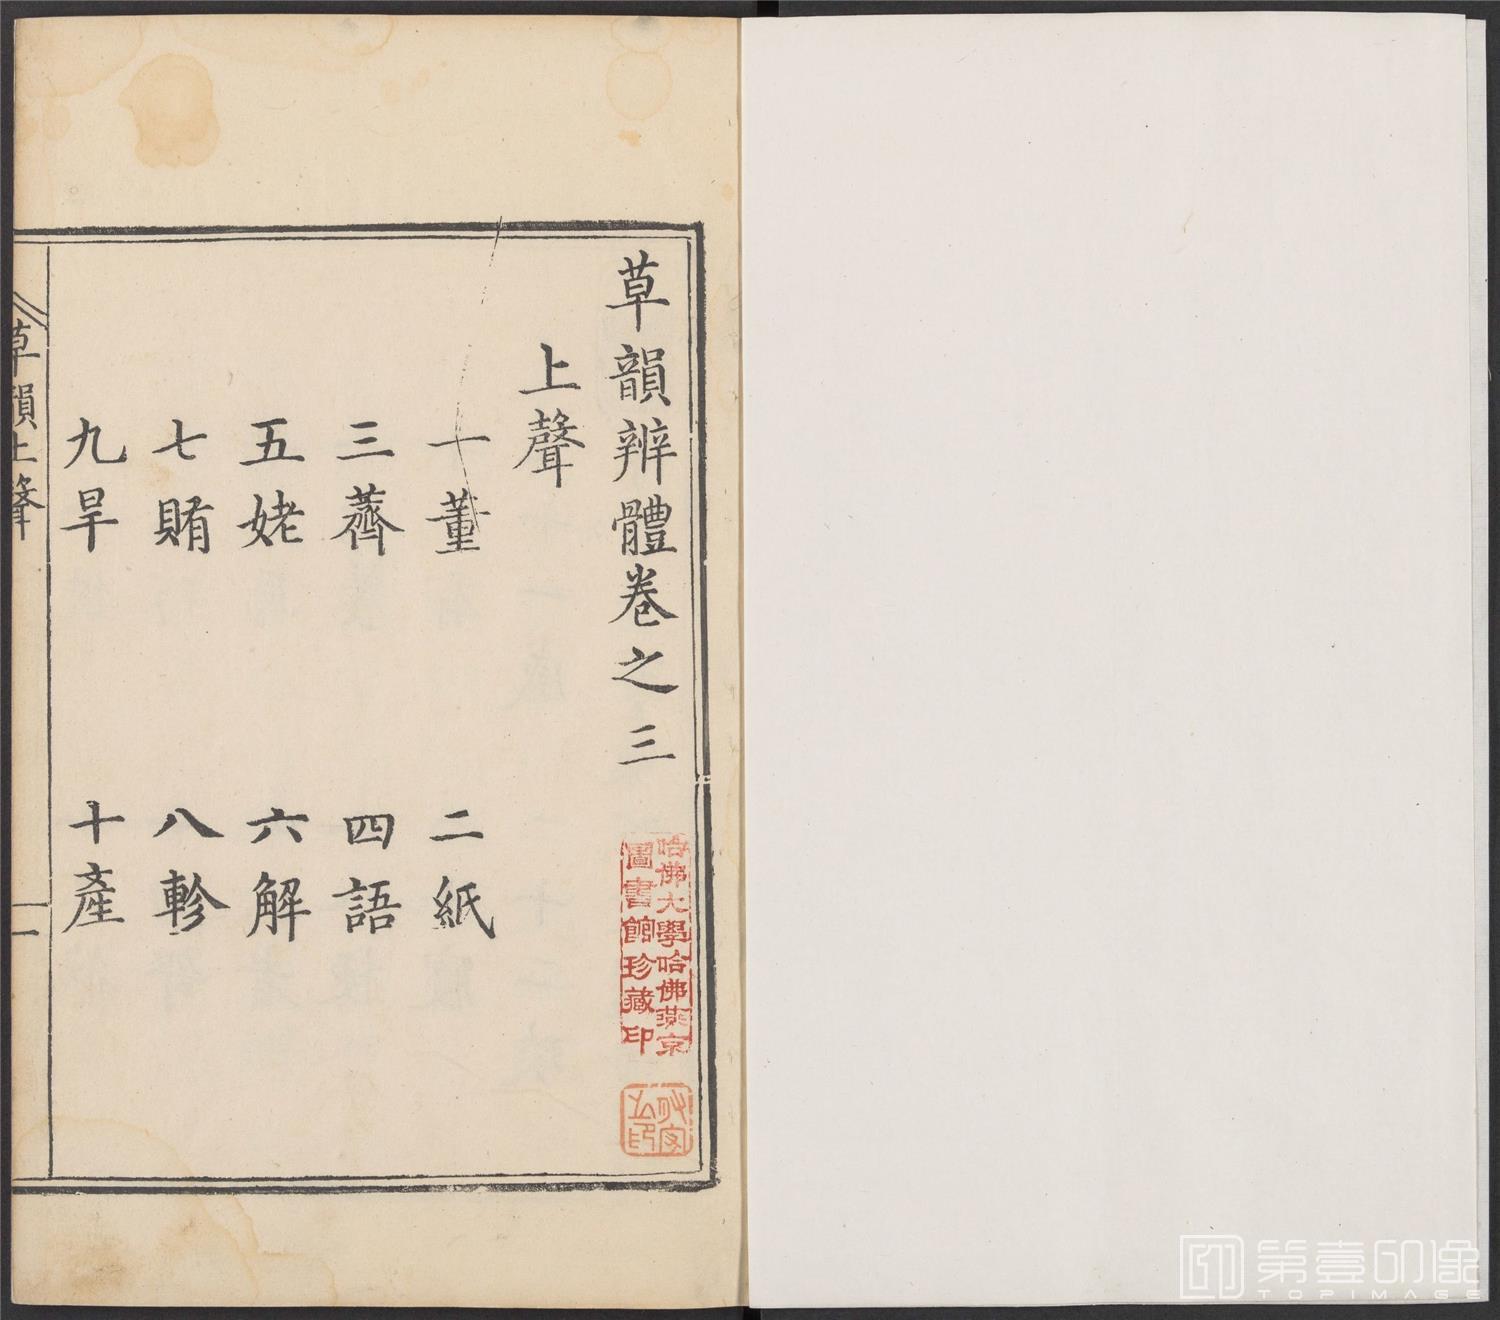 草韻辨體卷之三
上聲
一董 二紙
三薺 四語
五姥 六解
七賄 八軫
九旱 十產
草韻上聲
一
哈佛大學哈佛燕京
圖書館珍藏印
第壹印像
TOPIMAGE